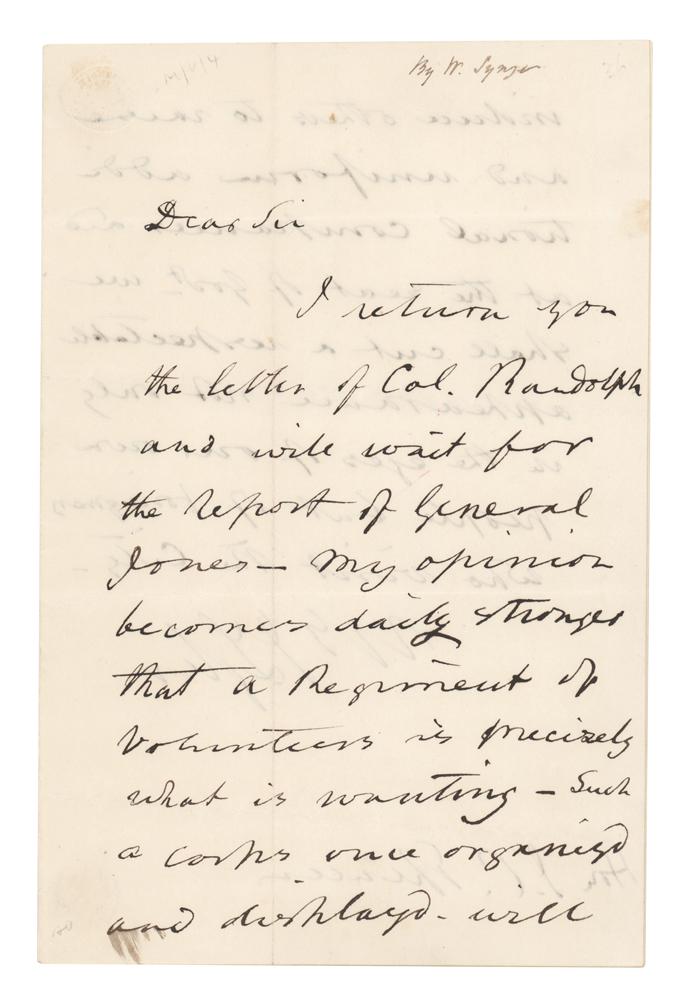 By W. Synge
Dear Sir
I return you
the letter of Col. Randolph
and will wait for
the report of General
Jones — My opinion
becomes daily stronger
that a Regiment of
Volunteers is precisely
what is wanting — Such
a corps once organized
and displayd - will